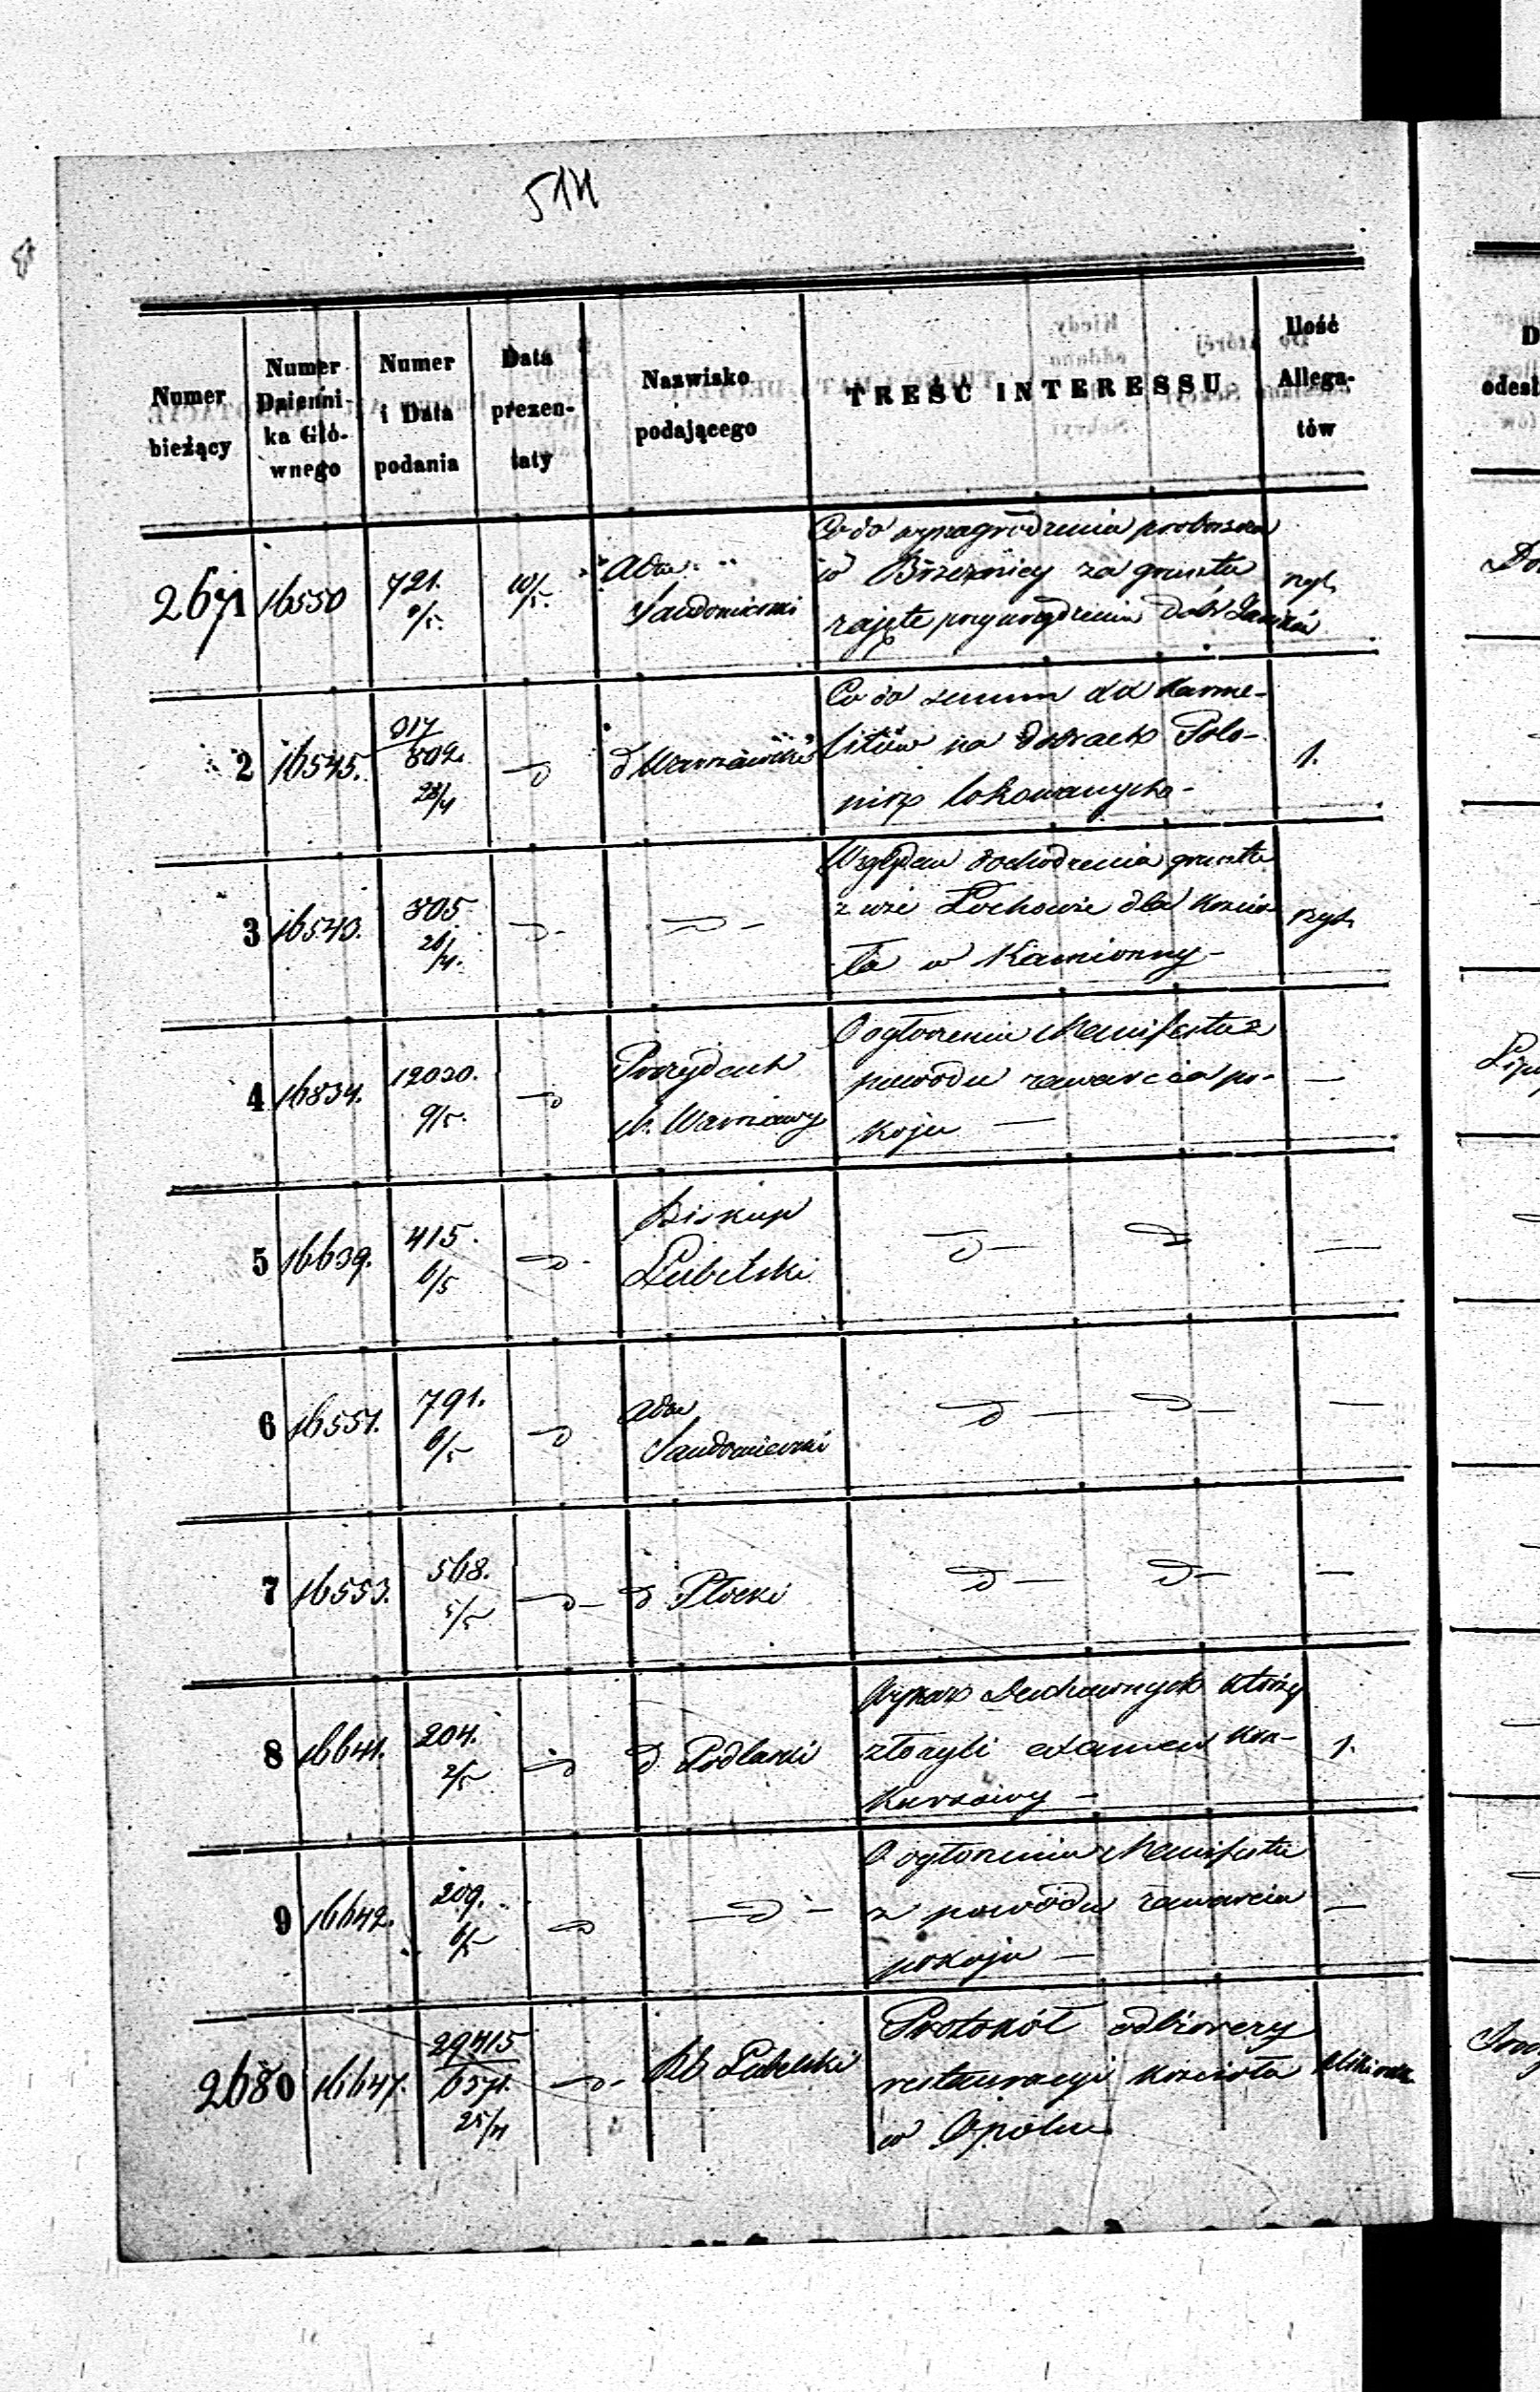 514
Numer bieżący
Numer Dzienni- ka Głó- wnego
Numer i Data podania
Data prezen- taty
Nazwisko podającego
TREŚĆ INTERESSU
Ilość Allega- tów
2671 16550 721. 10/5. Adm Sandomierski
Co do wynagrodzenia proboszcza
w Brzeznicy za grunta
zajęte przy urządzeniu dóbr
2 16545. 802. 28/4 d Warszawski 1.
Co do summ XX Karme-
litów na dobrach Poło-
nisz lokowanych -
3 16540. 805 26/4.
Względem dochodzenia gruntu
z wsi Łochowie dla Kościo
ła w Kamionny -
4 16834. 12020. 9/5. Prezydent M. Warszawy
O ogłoszeniu Manifestu z
powodu zawarcia po-
koju —
5 16639. 415. 6/5 Biskup Lubelski d — d —
6 16551. 791. 6/5 Adm Sandomierski d — d — —
7 16553. 568. 5/5 d — d Płocki d — d — —
8 16641. 204. 2/5 d d Podlaski 1.
Wykaz Duchownych którzy
złożyli examen kon-
kursowy -
9 16642. 209. 6/5 d d —
O ogłoszeniu Manifestu
z powodu zawarcia
pokoju —
2680 16647. 29415 6571. 25/4 d - RG Lubelski
Protokół odbiorczy
restauracyi kościoła
w Opolu